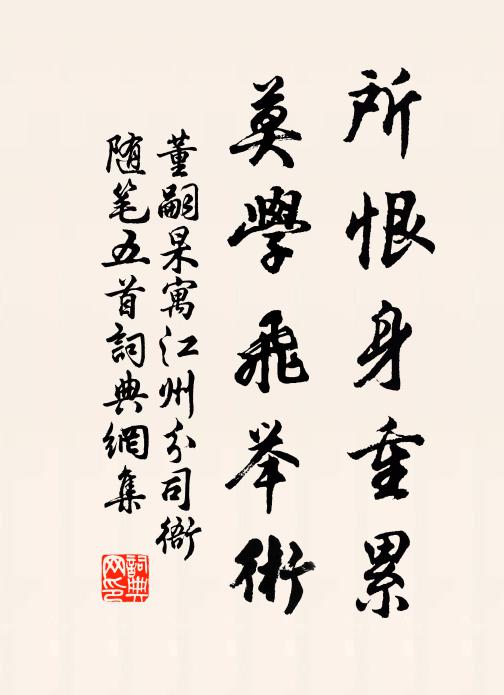 所恨身重累
莫學飛举術
董嗣杲寓江州分司衙
随笔五首詞典網集
詞典网印